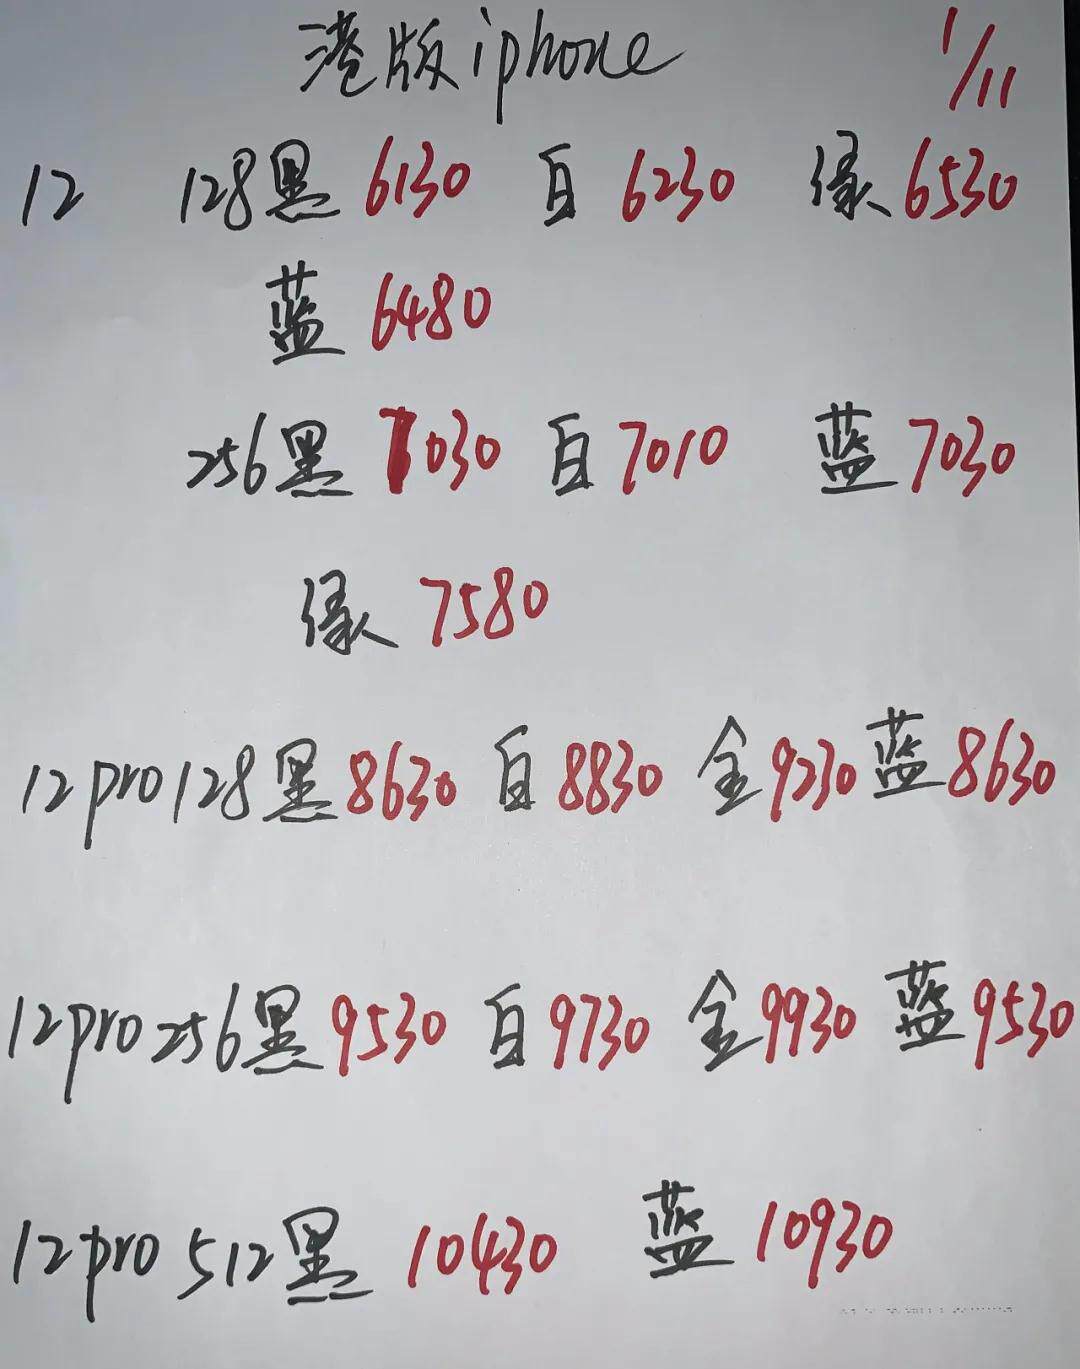 港版iphone 1/11
12 128黑 6130 白 6230 绿 6530
蓝 6480
256黑 7030 白 7010 蓝 7030
绿 7580
12pro 128黑 8630 白 8830 金 9230 蓝 8630
12pro 256黑 9530 白 9730 金 9930 蓝 9530
12pro 512黑 10430 蓝 10930